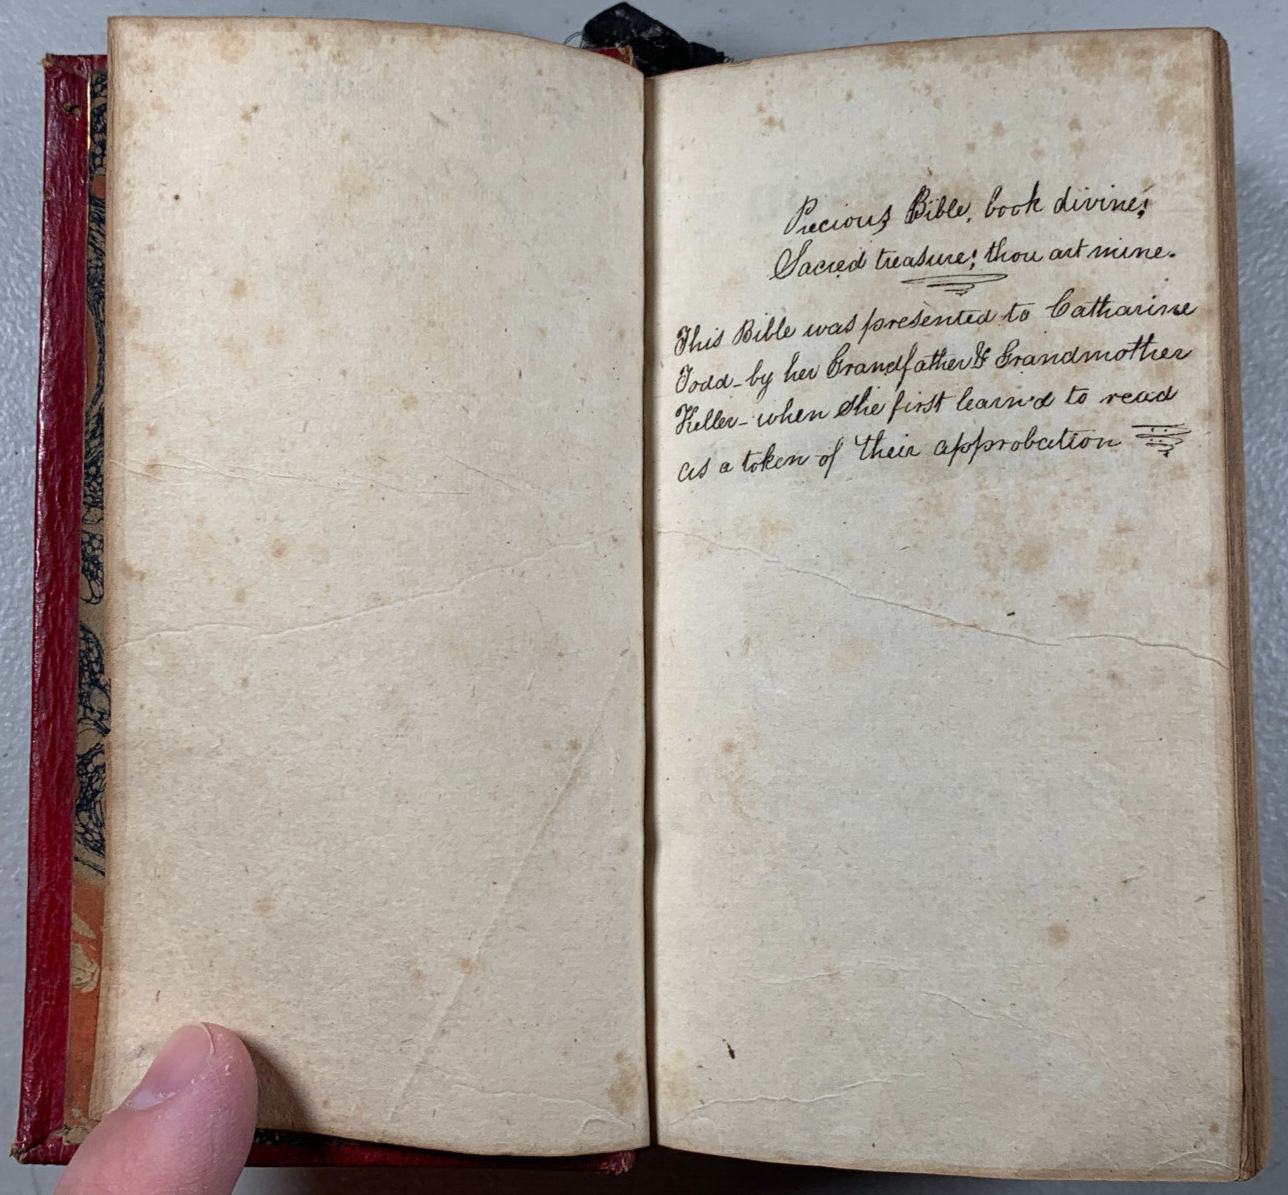 Precious Bible, book divine;
Sacred treasure; thou art mine.
This Bible was presented to Catharine
Todd - by her Grandfather & Grandmother
Keller - when She first learn'd to read
as a token of their approbation